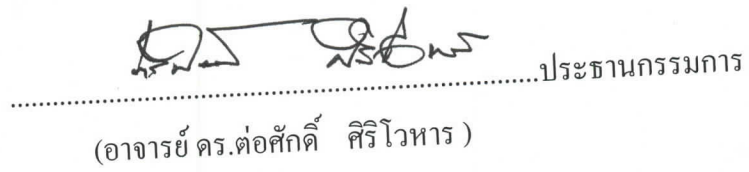 ...........................................................................ประธานกรรมการ
(อาจารย์ ดร.ต่อศักดิ์ ศิริโวหาร )